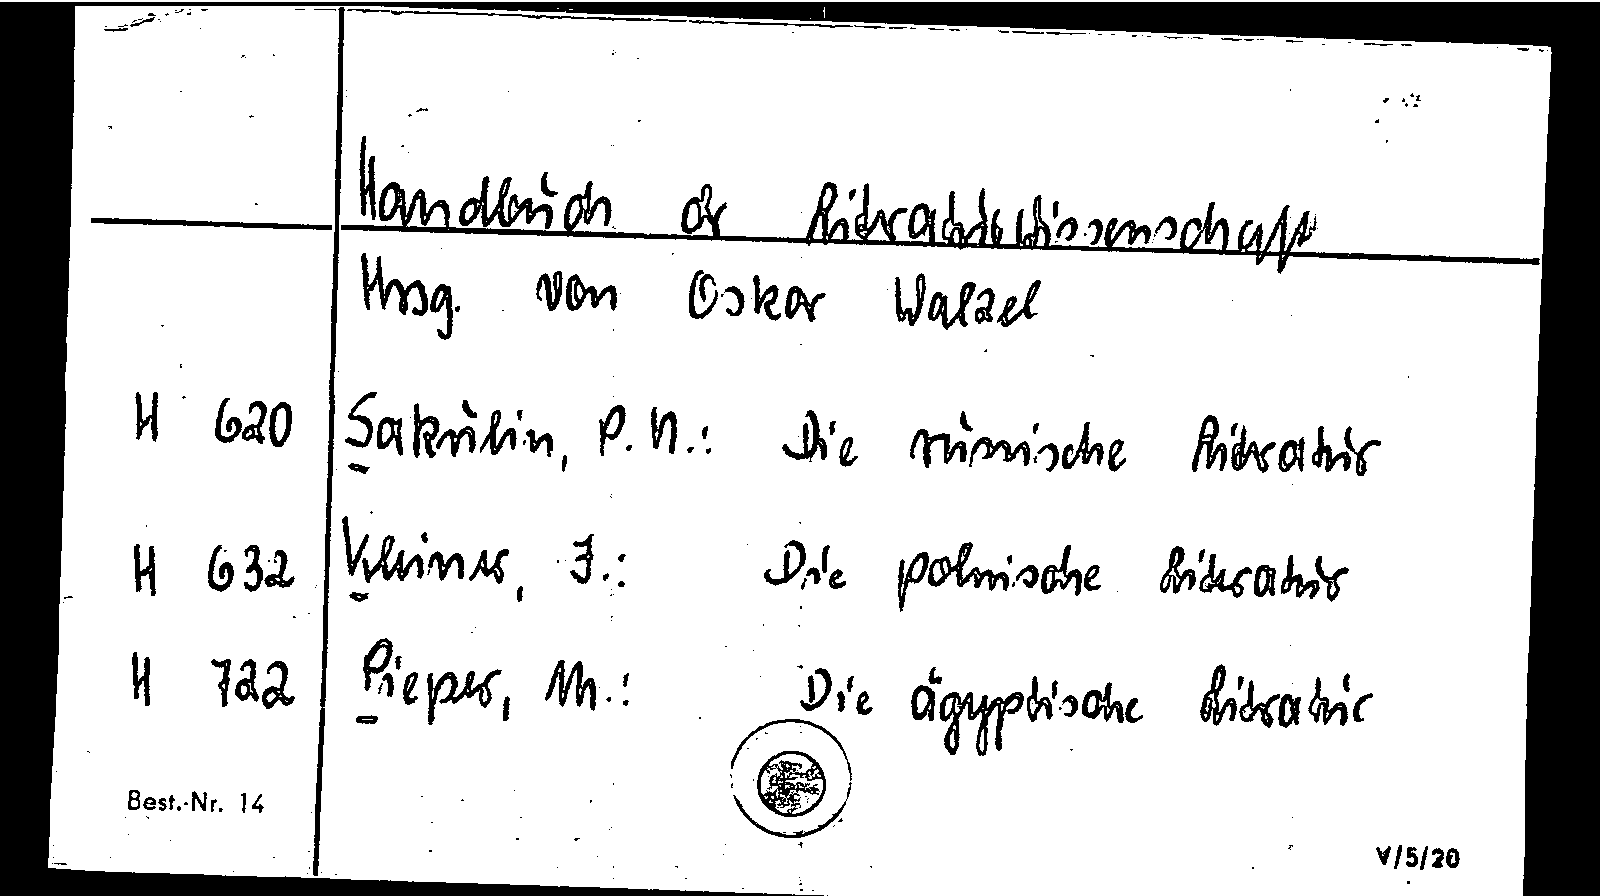 Handbuch der Literaturwissenschaft
Hrsg. von Oskar Walzel
H 620 Sakulin, P. N.: Die russische Literatur
H 632 Kleiner, J.: Die polnische Literatur
H 722 Pieper, M.: Die ägyptische Literatur
Best.-Nr. 14
V/5/20